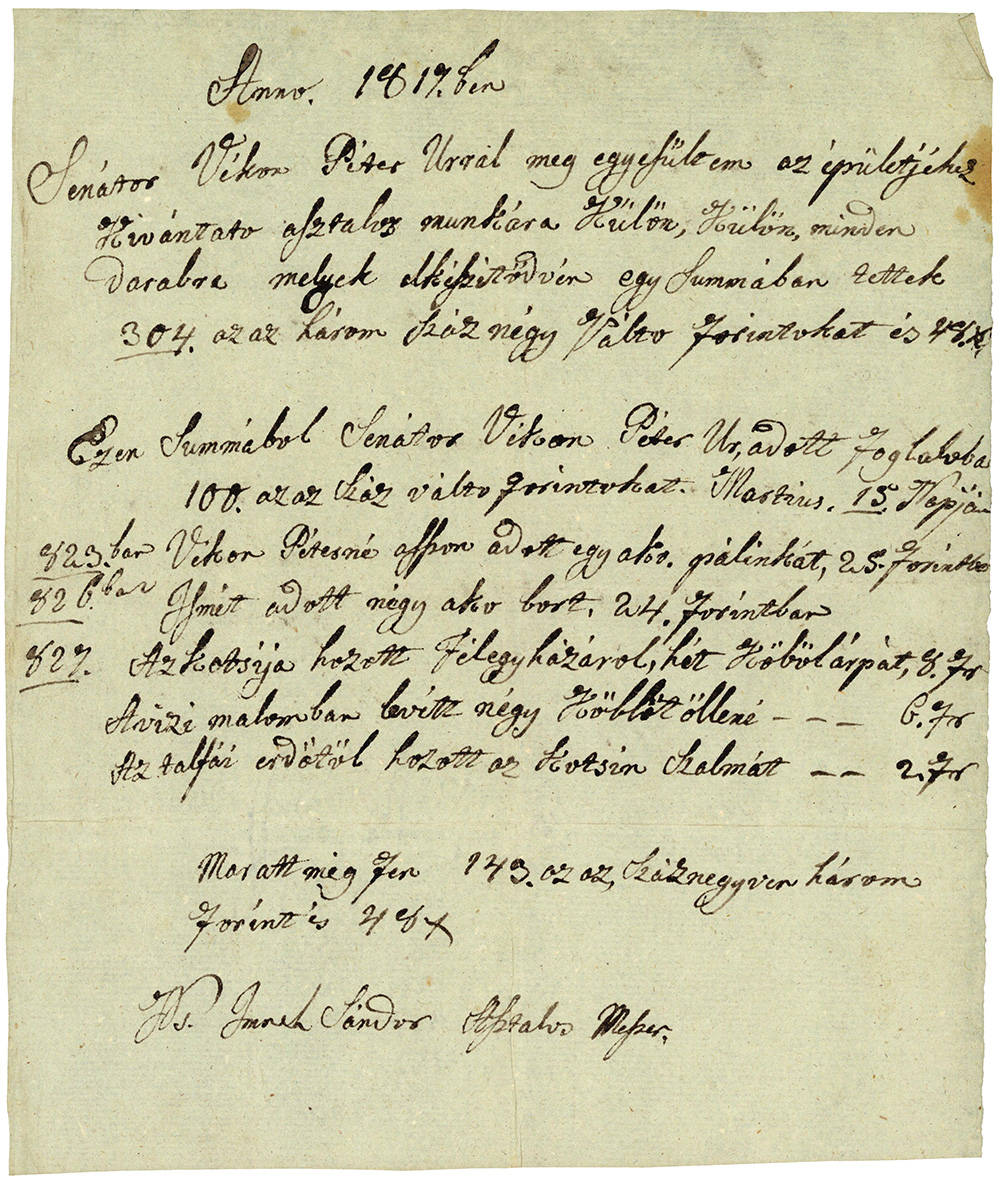 Anno. 1817.ben
Senátor Vékon Péter Urral meg egyesültem az épületjéhez
Kivántato asztalos munkára Külön, Külön, minden
darabra melyek elkészitödvén egy Summában tettek
304. az az három száz négy Válto forintokat és 48.x
Ezen Summábol Senátor Vékon Péter Ur, adott foglaloba
100. az az száz válto forintokat. Martius. 15. Napján
823.ban Vékon Péterné asszon adott egy ako. pálinkát, 25. forintba
826.ban Ismét adott négy ako bort, 24. forintban
827. Az kotsija hozott Félegyházárol, hét Köböl árpát, 8. fr
A vizi malomban levitt négy Köblöt öllení – – – 6. fr
Az talfái erdötöl hozott az Kotsin szalmát – – 2. fr
Maratt még fen 143. az az, száznegyven három
forint és 48 x
Ks. Imreh Sándor Asztalos Mester.